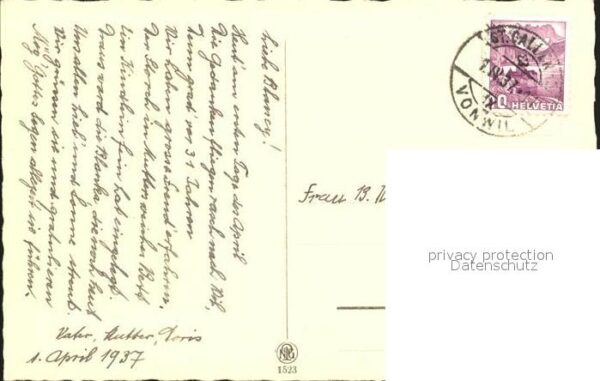 Liebe Blancy!
Heut' am ersten Tage des April
Die Gedanken fliegen rasch nach
Denn grad' vor 31 Jahren
Wir haben grosse Freud' erfahren,
Der Storch in Mutters weiches Bett
Ein Kindlein fein hat eingelegt.
Draus ward die Blanka die noch heut
Uns allen Lieb' und Sonne streut.
Wir grüssen sie und gratulieren
Mög Gottes Segen allzeit sie führen.
Vater, Mutter, Doris
1. April 1937
Frau B.
ST. GALLEN
1.IV.37
VONWIL
20
HELVETIA
privacy protection
Datenschutz
1523